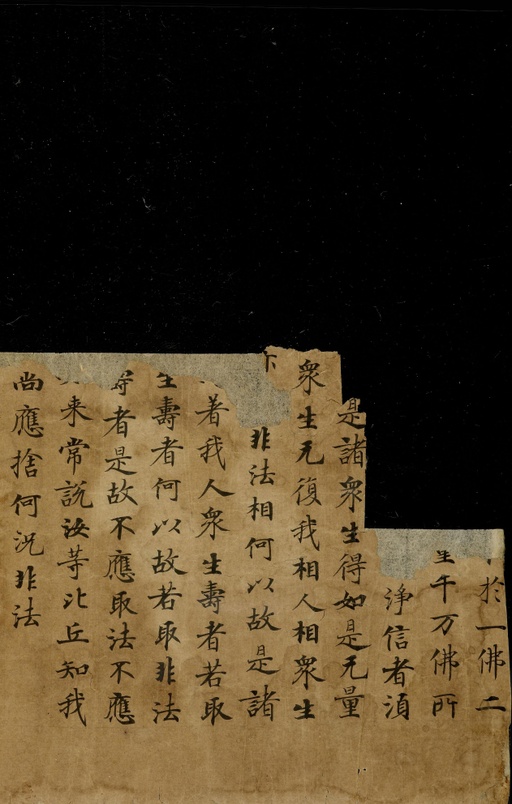 於一佛二
千万佛所
淨信者須
是諸衆生得如是无量
衆生无復我相人相衆生
非法相何以故是諸
著我人衆生壽者若取
生壽者何以故若取非法
壽者是故不應取法不應
来常說汝等比丘知我
尚應捨何況非法